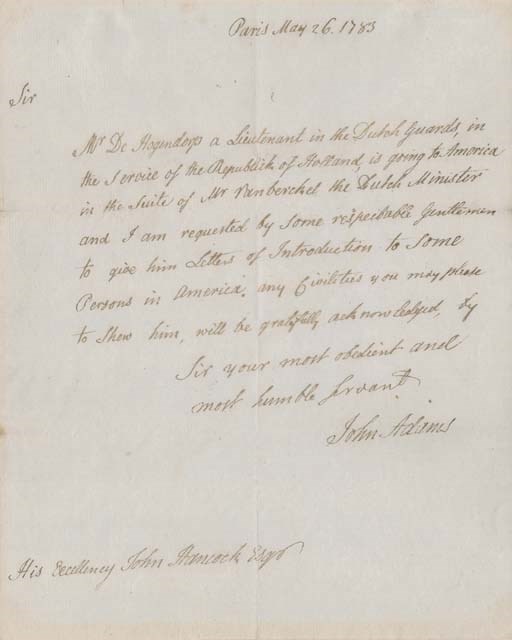 Paris May 26. 1783
Sir
Mr De Hogendorp a Lieutenant in the Dutch Guards, in
the Service of the Republick of Holland, is going to America
in the Suite of Mr Vanberckel the Dutch Minister
and I am requested by Some respectable Gentlemen
to give him Letters of Introduction to Some
Persons in America. any Civilities you may please
to Shew him, will be gratefully acknowledged, by
Sir your most obedient and
most humble Servant.
John Adams
His Excellency John Hancock Esqr